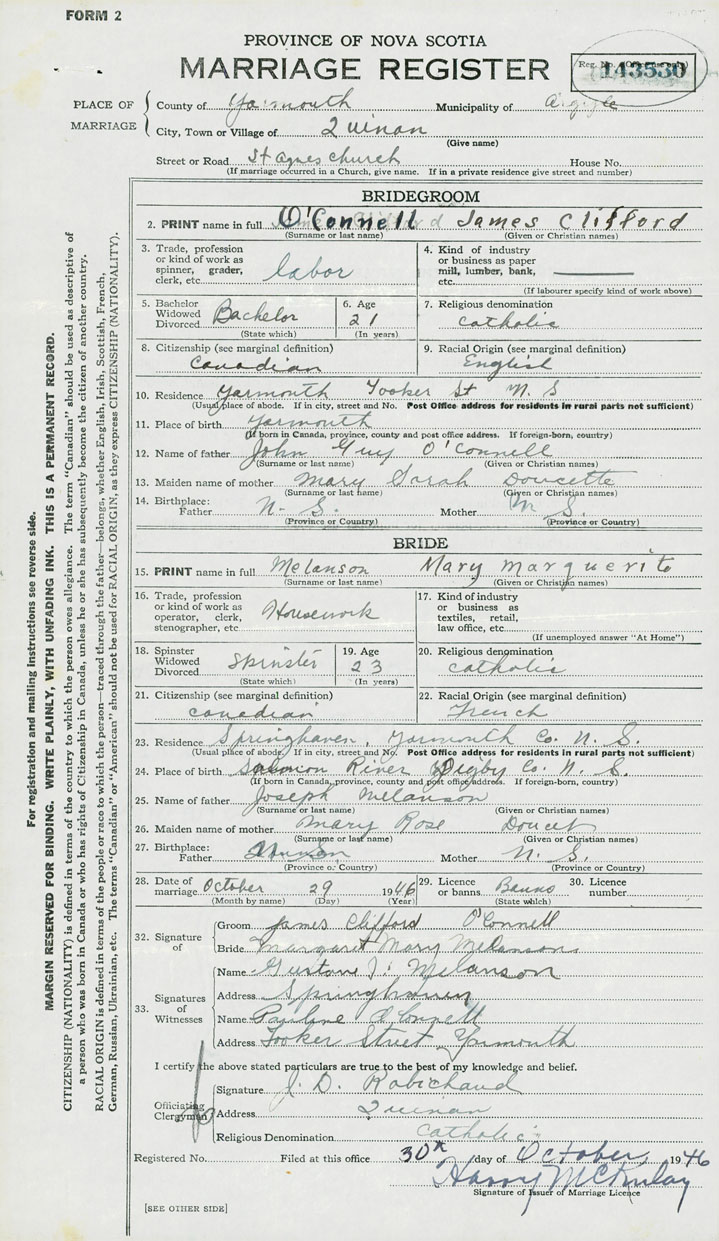 FORM 2
PROVINCE OF NOVA SCOTIA
MARRIAGE REGISTER
Reg. No. 143530
PLACE OF MARRIAGE
County of Yarmouth Municipality of Argyle
City, Town or Village of Quinan
(Give name)
Street or Road St Agnes church House No.
(If marriage occurred in a Church, give name. If in a private residence give street and number)
BRIDEGROOM
2. PRINT name in full O'Connell James Clifford
(Surname or last name) (Given or Christian names)
3. Trade, profession or kind of work as spinner, grader, clerk, etc. labor
4. Kind of industry or business as paper mill, lumber, bank, etc.
(If labourer specify kind of work above)
5. Bachelor Widowed Divorced Bachelor
(State which)
6. Age 21
(In years)
7. Religious denomination
catholic
8. Citizenship (see marginal definition)
Canadian
9. Racial Origin (see marginal definition)
English
10. Residence Yarmouth Tooker St N. S
(Usual place of abode. If in city, street and No. Post Office address for residents in rural parts not sufficient)
11. Place of birth Yarmouth
(If born in Canada, province, county and post office address. If foreign-born, country)
12. Name of father John Guy O'Connell
(Surname or last name) (Given or Christian names)
13. Maiden name of mother Mary Sarah Doucette
(Surname or last name) (Given or Christian names)
14. Birthplace: Father N. S. Mother N S.
(Province or Country) (Province or Country)
BRIDE
15. PRINT name in full Melanson Mary Marguerite
(Surname or last name) (Given or Christian names)
16. Trade, profession or kind of work as operator, clerk, stenographer, etc Housework
17. Kind of industry or business as textiles, retail, law office, etc.
(If unemployed answer "At Home")
18. Spinster Widowed Divorced Spinster
(State which)
19. Age 23
(In years)
20. Religious denomination
catholic
21. Citizenship (see marginal definition)
canedian
22. Racial Origin (see marginal definition)
French
23. Residence Springhaven, Yarmouth Co. N. S.
(Usual place of abode. If in city, street and No. Post Office address for residents in rural parts not sufficient)
24. Place of birth Salmon River Digby Co. N. S.
(If born in Canada, province, county and post office address. If foreign-born, country)
25. Name of father Joseph Melanson
(Surname or last name) (Given or Christian names)
26. Maiden name of mother Mary Rose Doucet
(Surname or last name) (Given or Christian names)
27. Birthplace: Father Mother N. S.
(Province or Country) (Province or Country)
28. Date of marriage October 29 1946
(Month by name) (Day) (Year)
29. Licence or banns Banns
(State which)
30. Licence number
32. Signature of
Groom James Clifford O'Connell
Bride Margaret Mary Melanson
33. Signatures of Witnesses
Name Melanson
Address Springhaven
Name Pauline O'Connell
Address Tooker Street Yarmouth
I certify the above stated particulars are true to the best of my knowledge and belief.
Officiating Clergyman
Signature J. D. Robichaud
Address Quinan
Religious Denomination Catholic
Registered No. Filed at this office 30th day of October, 1946
Harry McKinlay
Signature of Issuer of Marriage Licence
[SEE OTHER SIDE]
For registration and mailing instructions see reverse side.
MARGIN RESERVED FOR BINDING. WRITE PLAINLY, WITH UNFADING INK. THIS IS A PERMANENT RECORD.
CITIZENSHIP (NATIONALITY) is defined in terms of the country to which the person owes allegiance. The term "Canadian" should be used as descriptive of
a person who was born in Canada or who has rights of Citizenship in Canada, unless he or she has subsequently become the citizen of another country.
RACIAL ORIGIN is defined in terms of the people or race to which the person—traced through the father—belongs, whether English, Irish, Scottish, French,
German, Russian, Ukrainian, etc. The terms "Canadian" or "American" should not be used for RACIAL ORIGIN, as they express CITIZENSHIP (NATIONALITY).